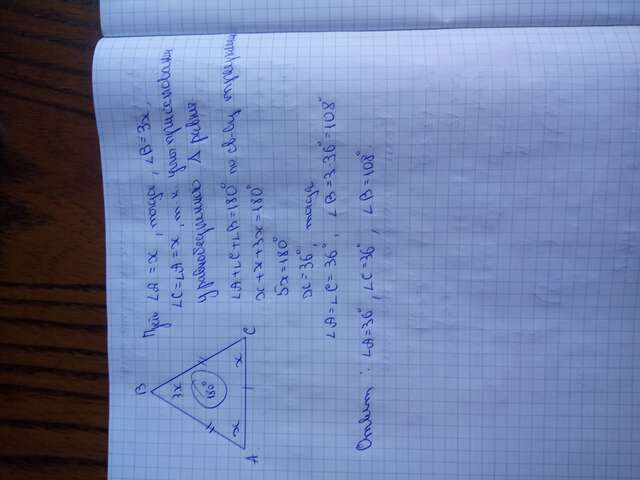 B
3x
180°
x
x
A
C
Пусть ∠A = x, тогда, ∠B = 3x,
∠C = ∠A = x, т. к. углы при основании
у равнобедренного Δ равны.
∠A + ∠C + ∠B = 180° по св-ву треугольника
x + x + 3x = 180°
5x = 180°
x = 36°, тогда
∠A = ∠C = 36°, ∠B = 3·36° = 108°
Ответ: ∠A = 36°, ∠C = 36°, ∠B = 108°.